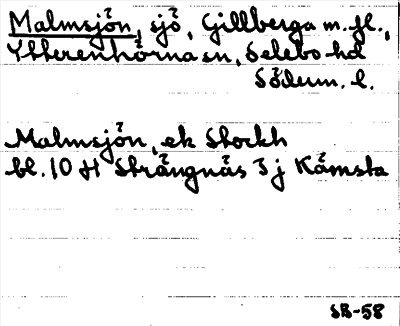 Malmsjön, sjö, Gillberga m. fl.,
Ytterenhörna sn, Selebo hd
Söderm. l.
Malmsjön, ek Stockh
bl. 10 H Strängnäs 3 j Kåmsta
SB-58